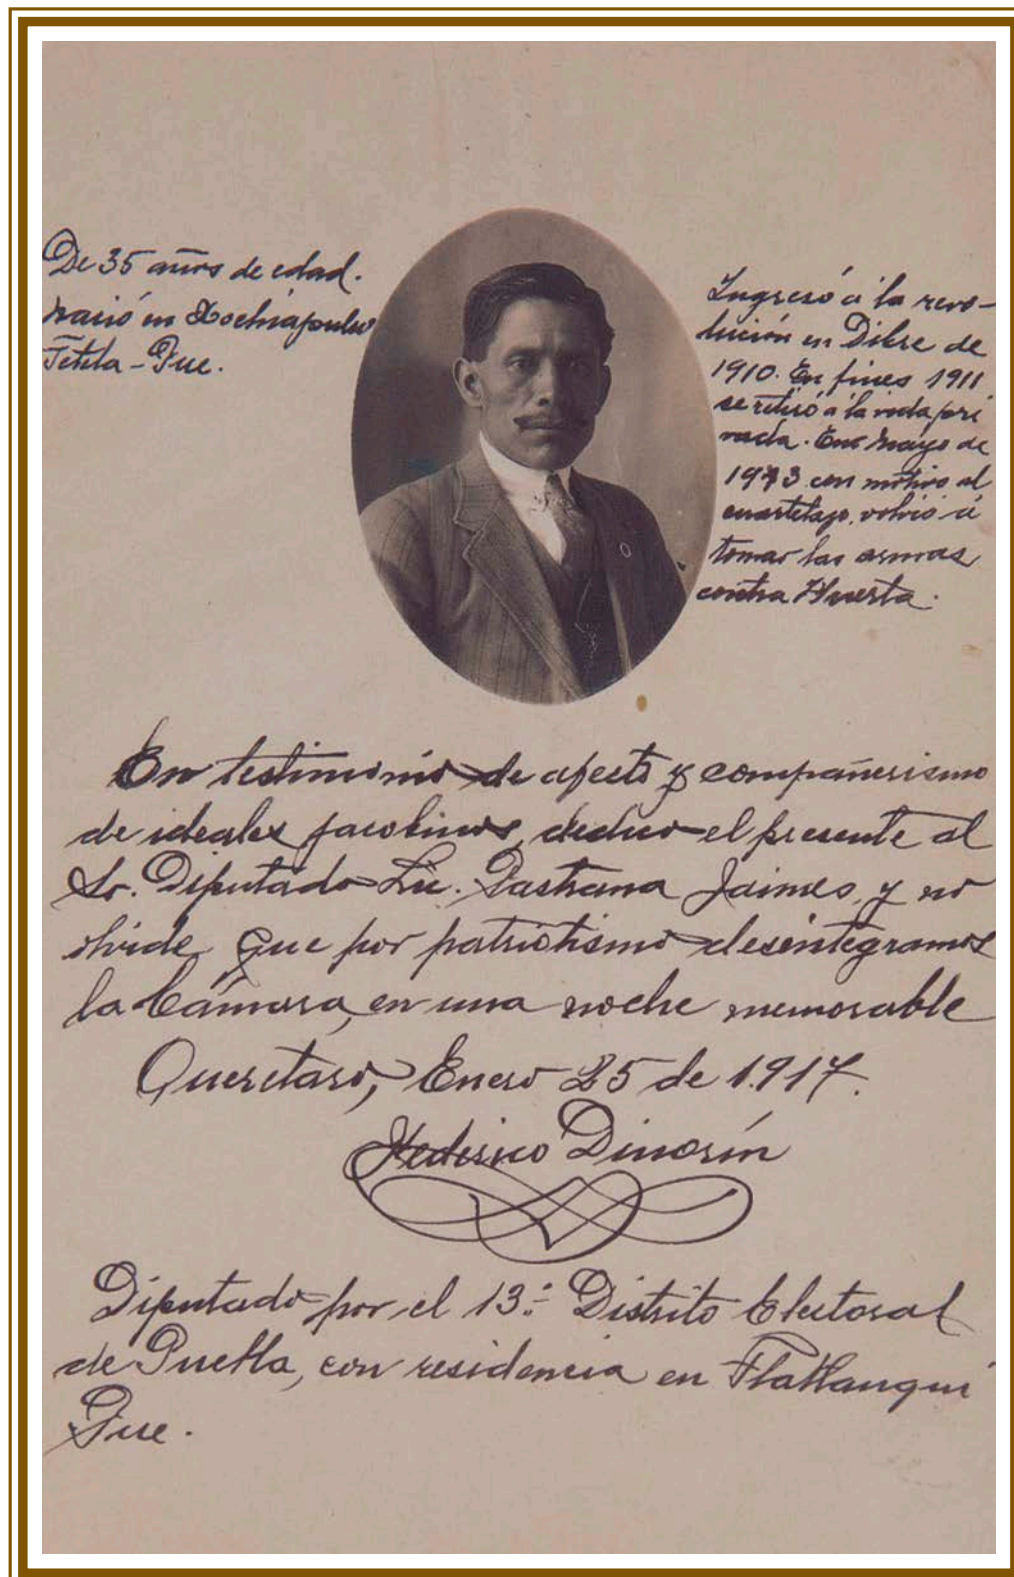 De 35 años de edad.
Nació en Xochiapulco
Tetela - Pue.
Ingresó á la revo-
lución en Dibre de
1910. En fines 1911
se retiró a la vida pri
vada. En Mayo de
1913 con motivo al
cuartelazo, volvió á
tomar las armas
contra Huerta.
En testimonio de afecto y compañerismo
de ideales jacobinos, dedico el presente al
Sr. Diputado Lic. Pastrana Jaimes, y no
olvide que por patriotismo desintegramos
la Cámara, en una noche memorable
Queretaro, Enero 25 de 1.917.
Federico Dinorín
Diputado por el 13.º Distrito Electoral
de Puebla, con residencia en Tlatlauqui
Pue.